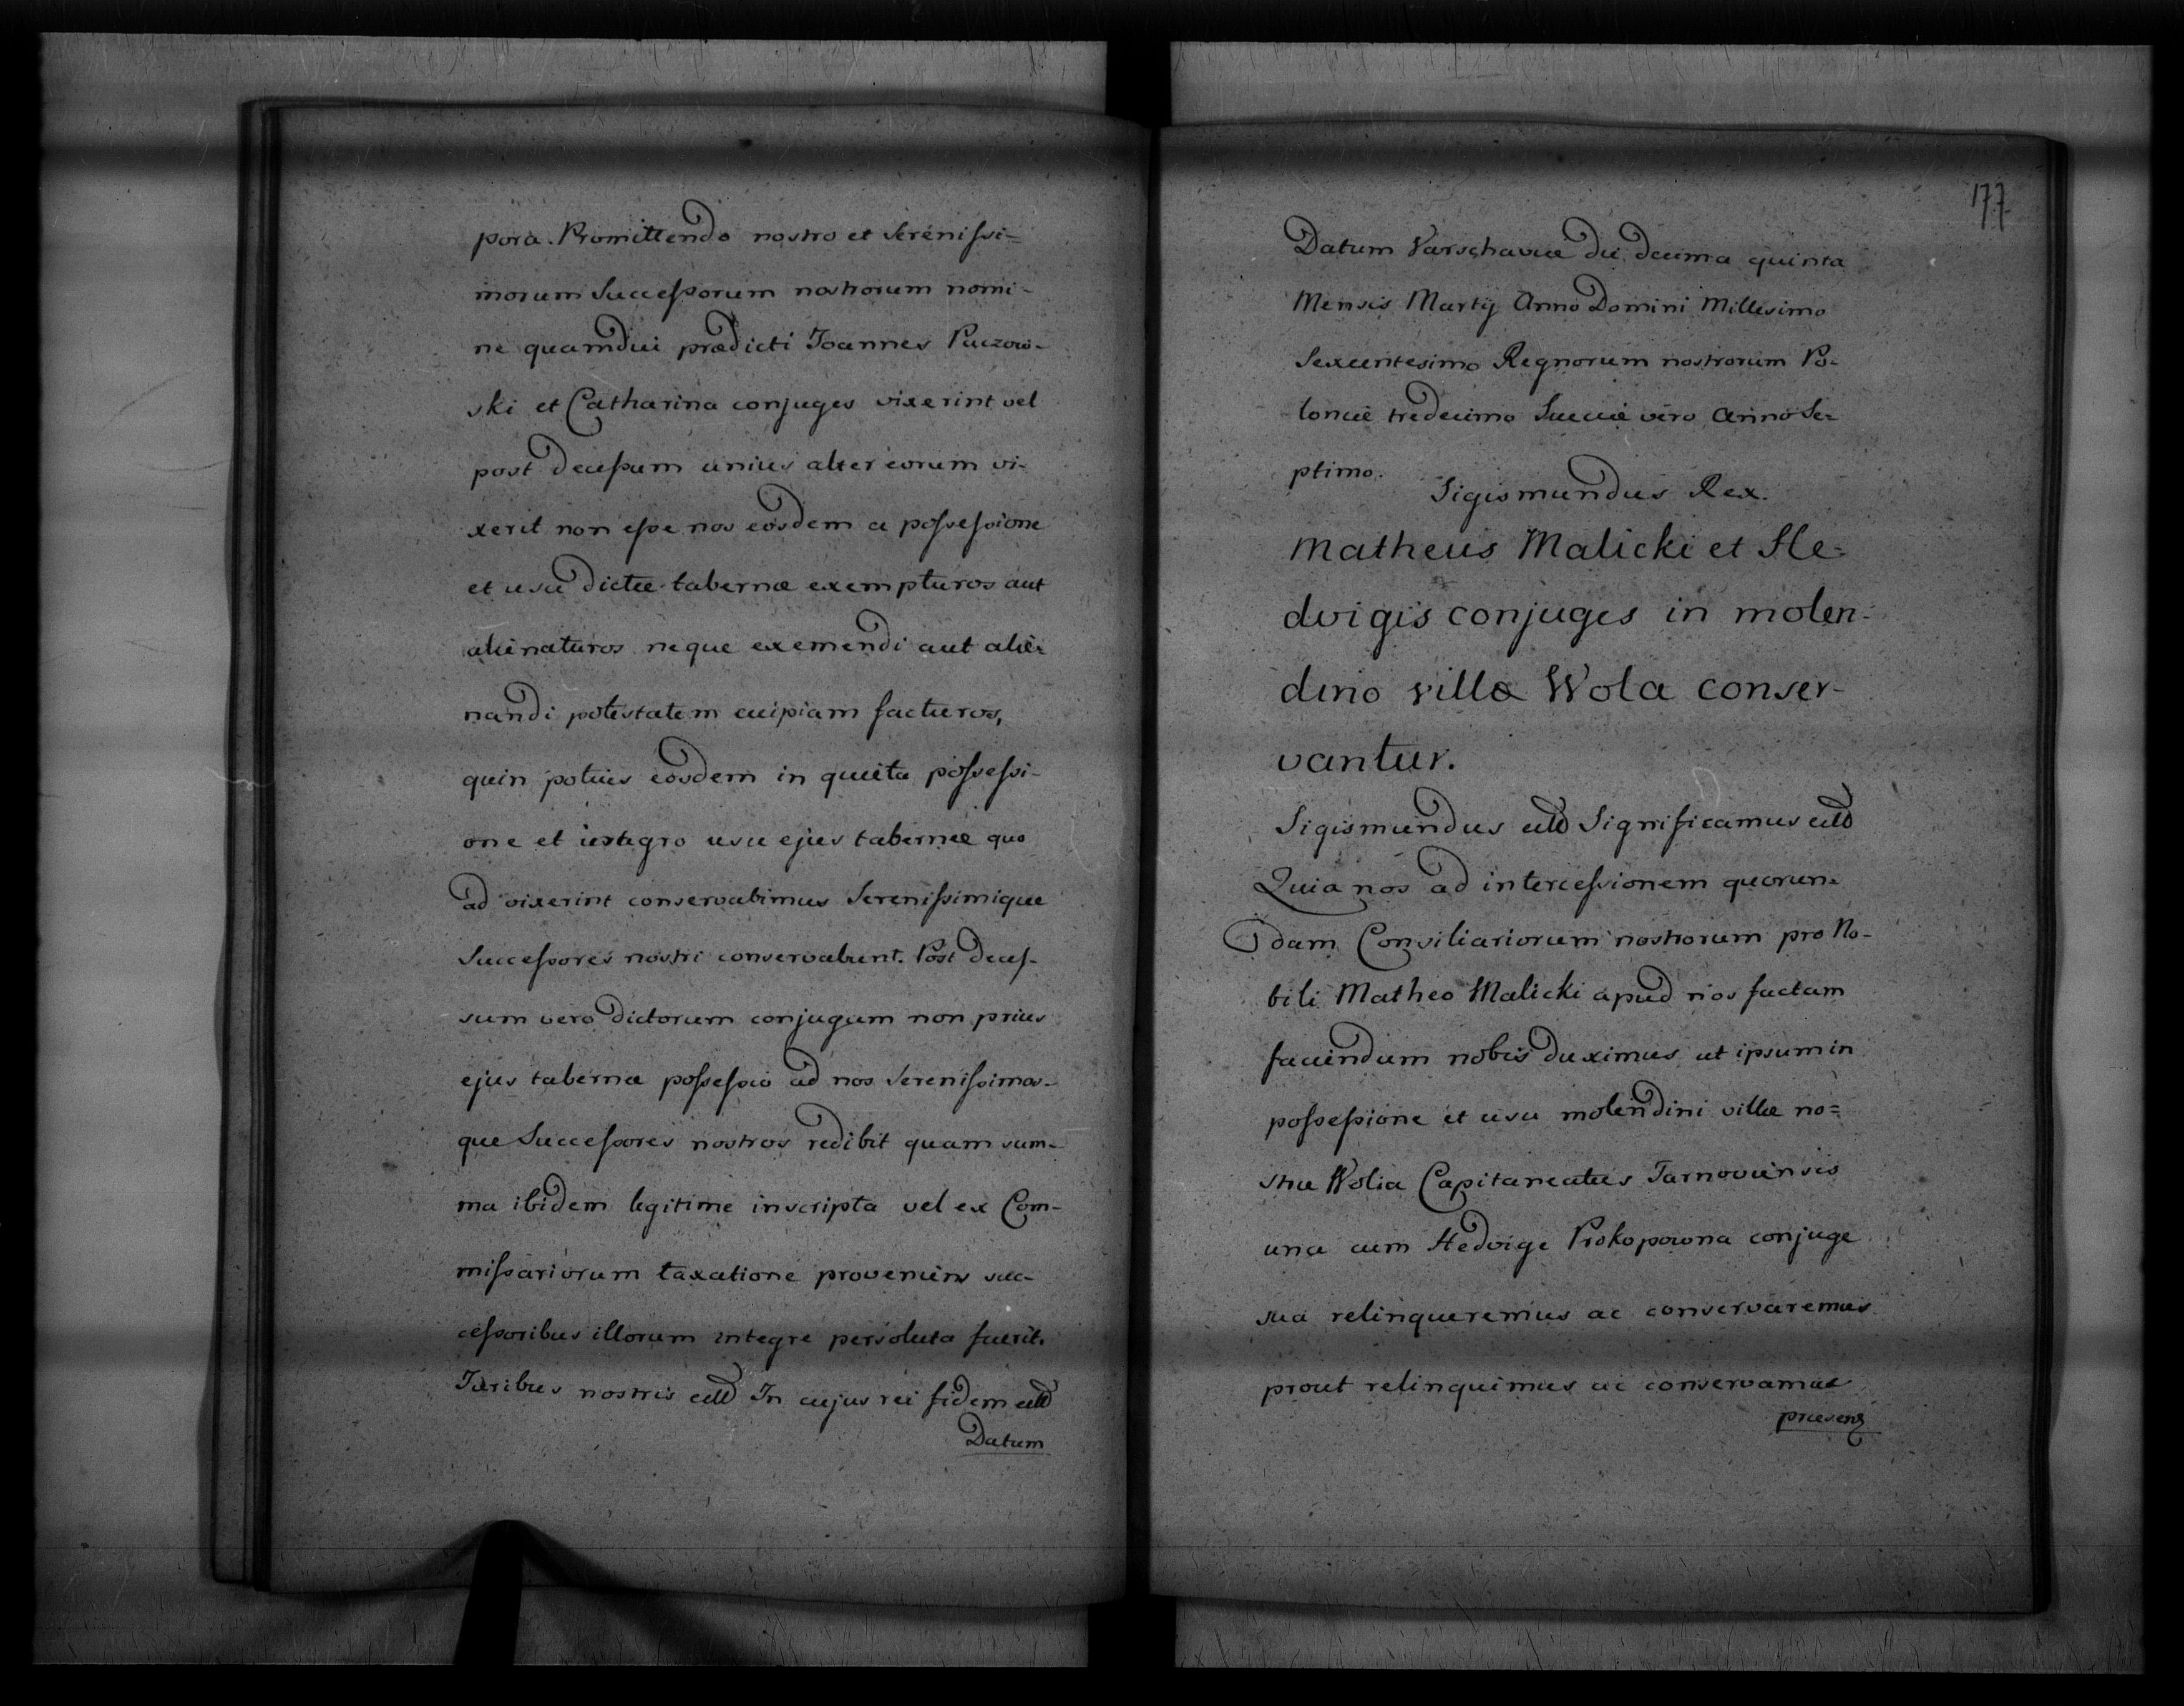 pora. Promittendo nostro et Serenissi=
morum Successorum nostrorum nomi-
ne quamdiu prædicti Joannes Puczow-
ski et Catharina conjuges vixerint vel
post decessum unius alter eorum vi-
xerit non esse nos eosdem a possessione
et usu dictæ tabernæ exempturos aut
alienaturos neque exemendi aut alie-
nandi potestatem cuipiam facturos,
quin potius eosdem in quieta possessi-
one et integro usu ejus tabernæ quo
ad vixerint conservabimus Serenissimique
Successores nostri conservabunt. Post deces-
sum vero dictorum conjugum non prius
ejus tabernæ possessio ad nos Serenissimos-
que Successores nostros redibit quam sum-
ma ibidem legitime inscripta vel ex Com-
missariorum taxatione proveniens suc-
cessoribus illorum integre persoluta fuerit.
Juribus nostris etc In cujus rei fidem etc
Datum
177
Datum Varschaviæ die decima quinta
Mensis Martij Anno Domini Millesimo
Sexcentesimo Regnorum nostrorum Po-
loniæ tredecimo Sueciæ vero Anno Se-
ptimo.
Sigismundus Rex.
Matheus Malicki et He-
dvigis conjuges in molen-
dino villæ Wola conser-
vantur.
Sigismundus etc Significamus etc
Quia nos ad intercessionem quorun-
dam Consiliariorum nostrorum pro No-
bili Matheo Malicki apud nos factam
faciendum nobis duximus ut ipsum in
possessione et usu molendini villæ no=
stræ Wolia Capitaneatus Tarnoviensis
una cum Hedvige Prokopowna conjuge
sua relinqueremus ac conservaremus
prout relinquimus ac conservamus
præsen